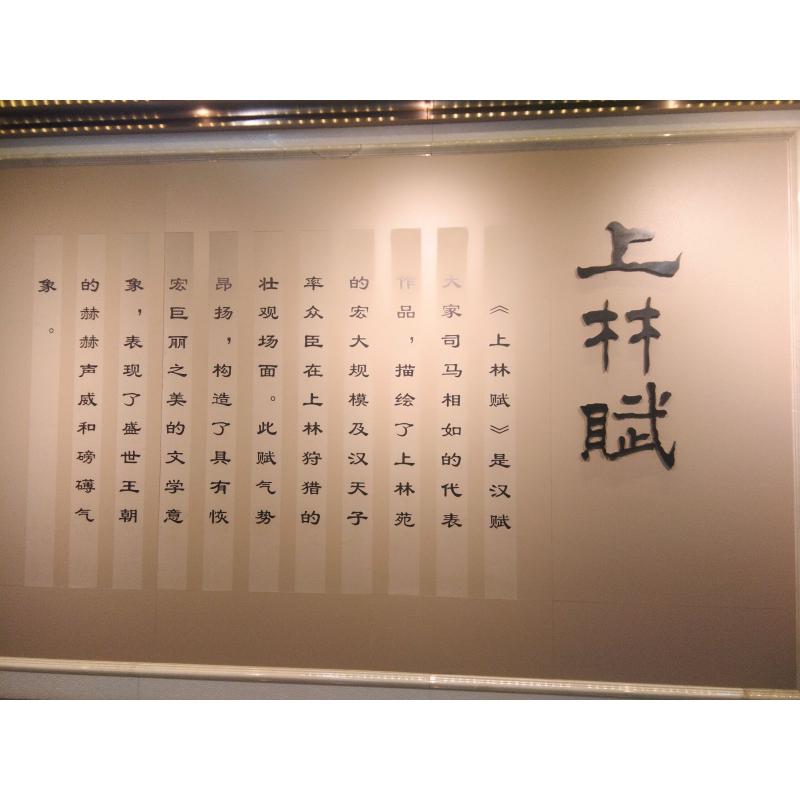 上林赋
《上林赋》是汉赋
大家司马相如的代表
作品，描绘了上林苑
的宏大规模及汉天子
率众臣在上林狩猎的
壮观场面。此赋气势
昂扬，构造了具有恢
宏巨丽之美的文学意
象，表现了盛世王朝
的赫赫声威和磅礴气
象。